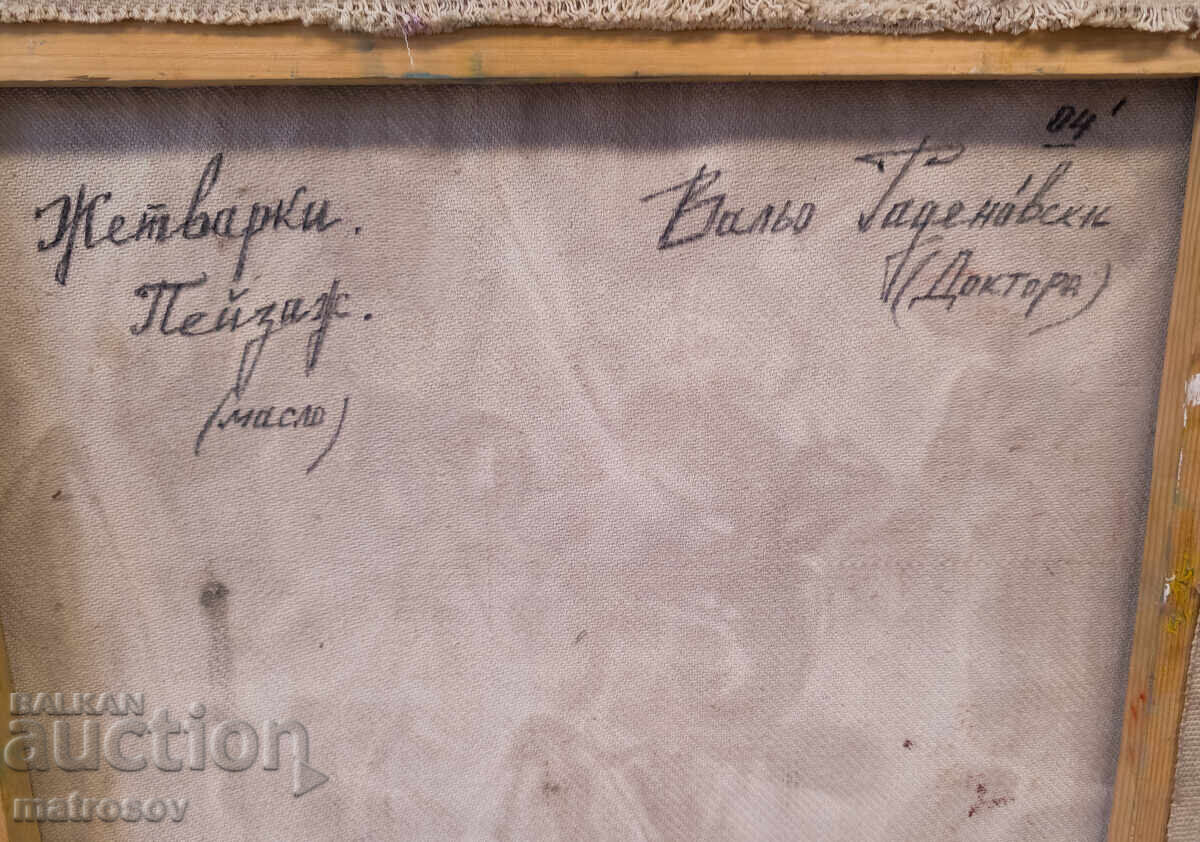 04'
Жетварки.
Пейзаж.
(масло)
Вальо Гаденовски
(Доктора)
BALKAN
auction
matrosov